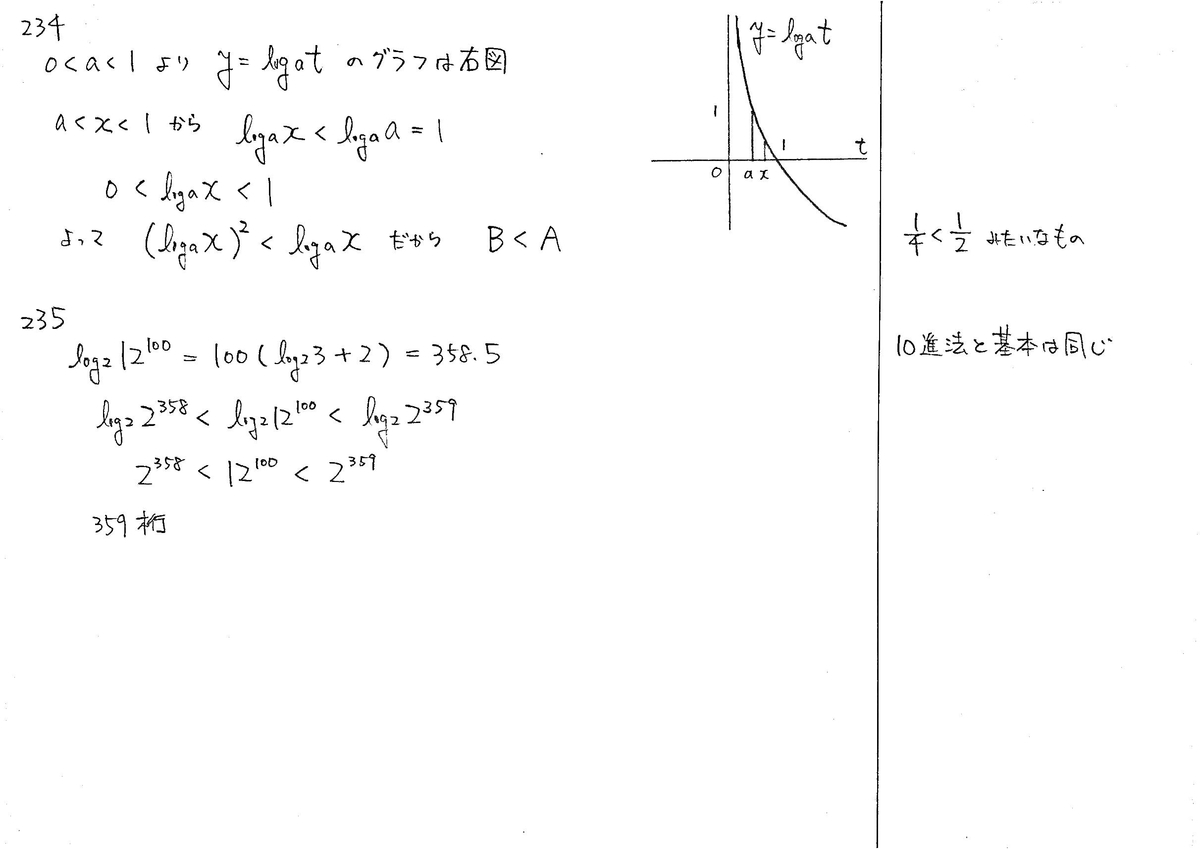 234
0<a<1 より y=logat のグラフは右図
a<x<1 から logax<logaa=1
0<logax<1
よって (logax)²<logax だから B<A
y=logat
1
1
t
0
a x
1/4<1/2 みたいなもの
235
log₂12¹⁰⁰=100(log₂3+2)=358.5
log₂2³⁵⁸<log₂12¹⁰⁰<log₂2³⁵⁹
2³⁵⁸<12¹⁰⁰<2³⁵⁹
359桁
10進法と基本は同じ